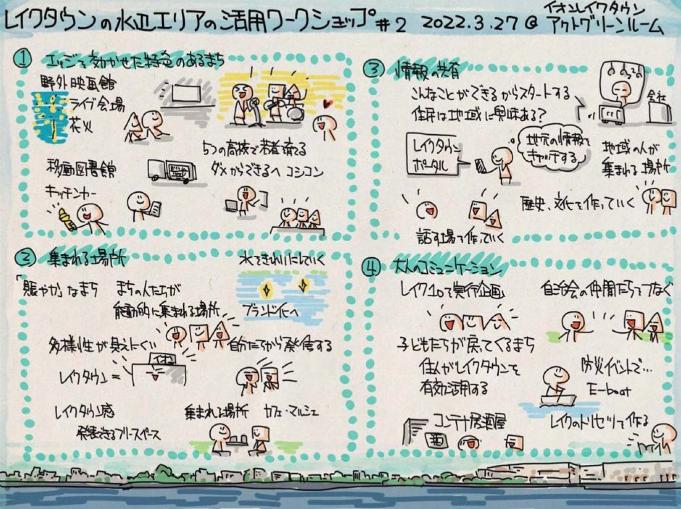 レイクタウンの水辺エリアの活用ワークショップ#2 2022.3.27@
イオンレイクタウン
アウトグリーンルーム
① エッジを効かせた特色のあるまち
野外映画館
ライブ会場
花火
移動図書館
キッチンカー
5つの高校で若者育てる
ダメからできるへ コンコン
② 集まれる場所
水をきれいにしていく
「賑やか」なまち
まちの人たちが
能動的に集まれる場所
ブランド化へ
多様性が見えにくい
自分たちから発信する
レイクタウン=
イオン
レイクタウン感
発表できるフリースペース
集まれる場所 カフェ・マルシェ
③ 情報の共有
こんなことができるからスタートする
住民は地域に興味ある?
会社
レイクタウン
ポータル
地元の情報を
キャッチする
地域の人が
集まれる場所
歴史、文化を作っていく
話す場を作っていく
④ 大人のコミュニケーション
レイクLOで実行企画
自治会の仲間たちでつなぐ
子どもたちが戻ってくるまち
住人がレイクタウンを
有効活用する
防災イベントで…
E-boat
コンテナ居酒屋
レイクのトリセツを作る